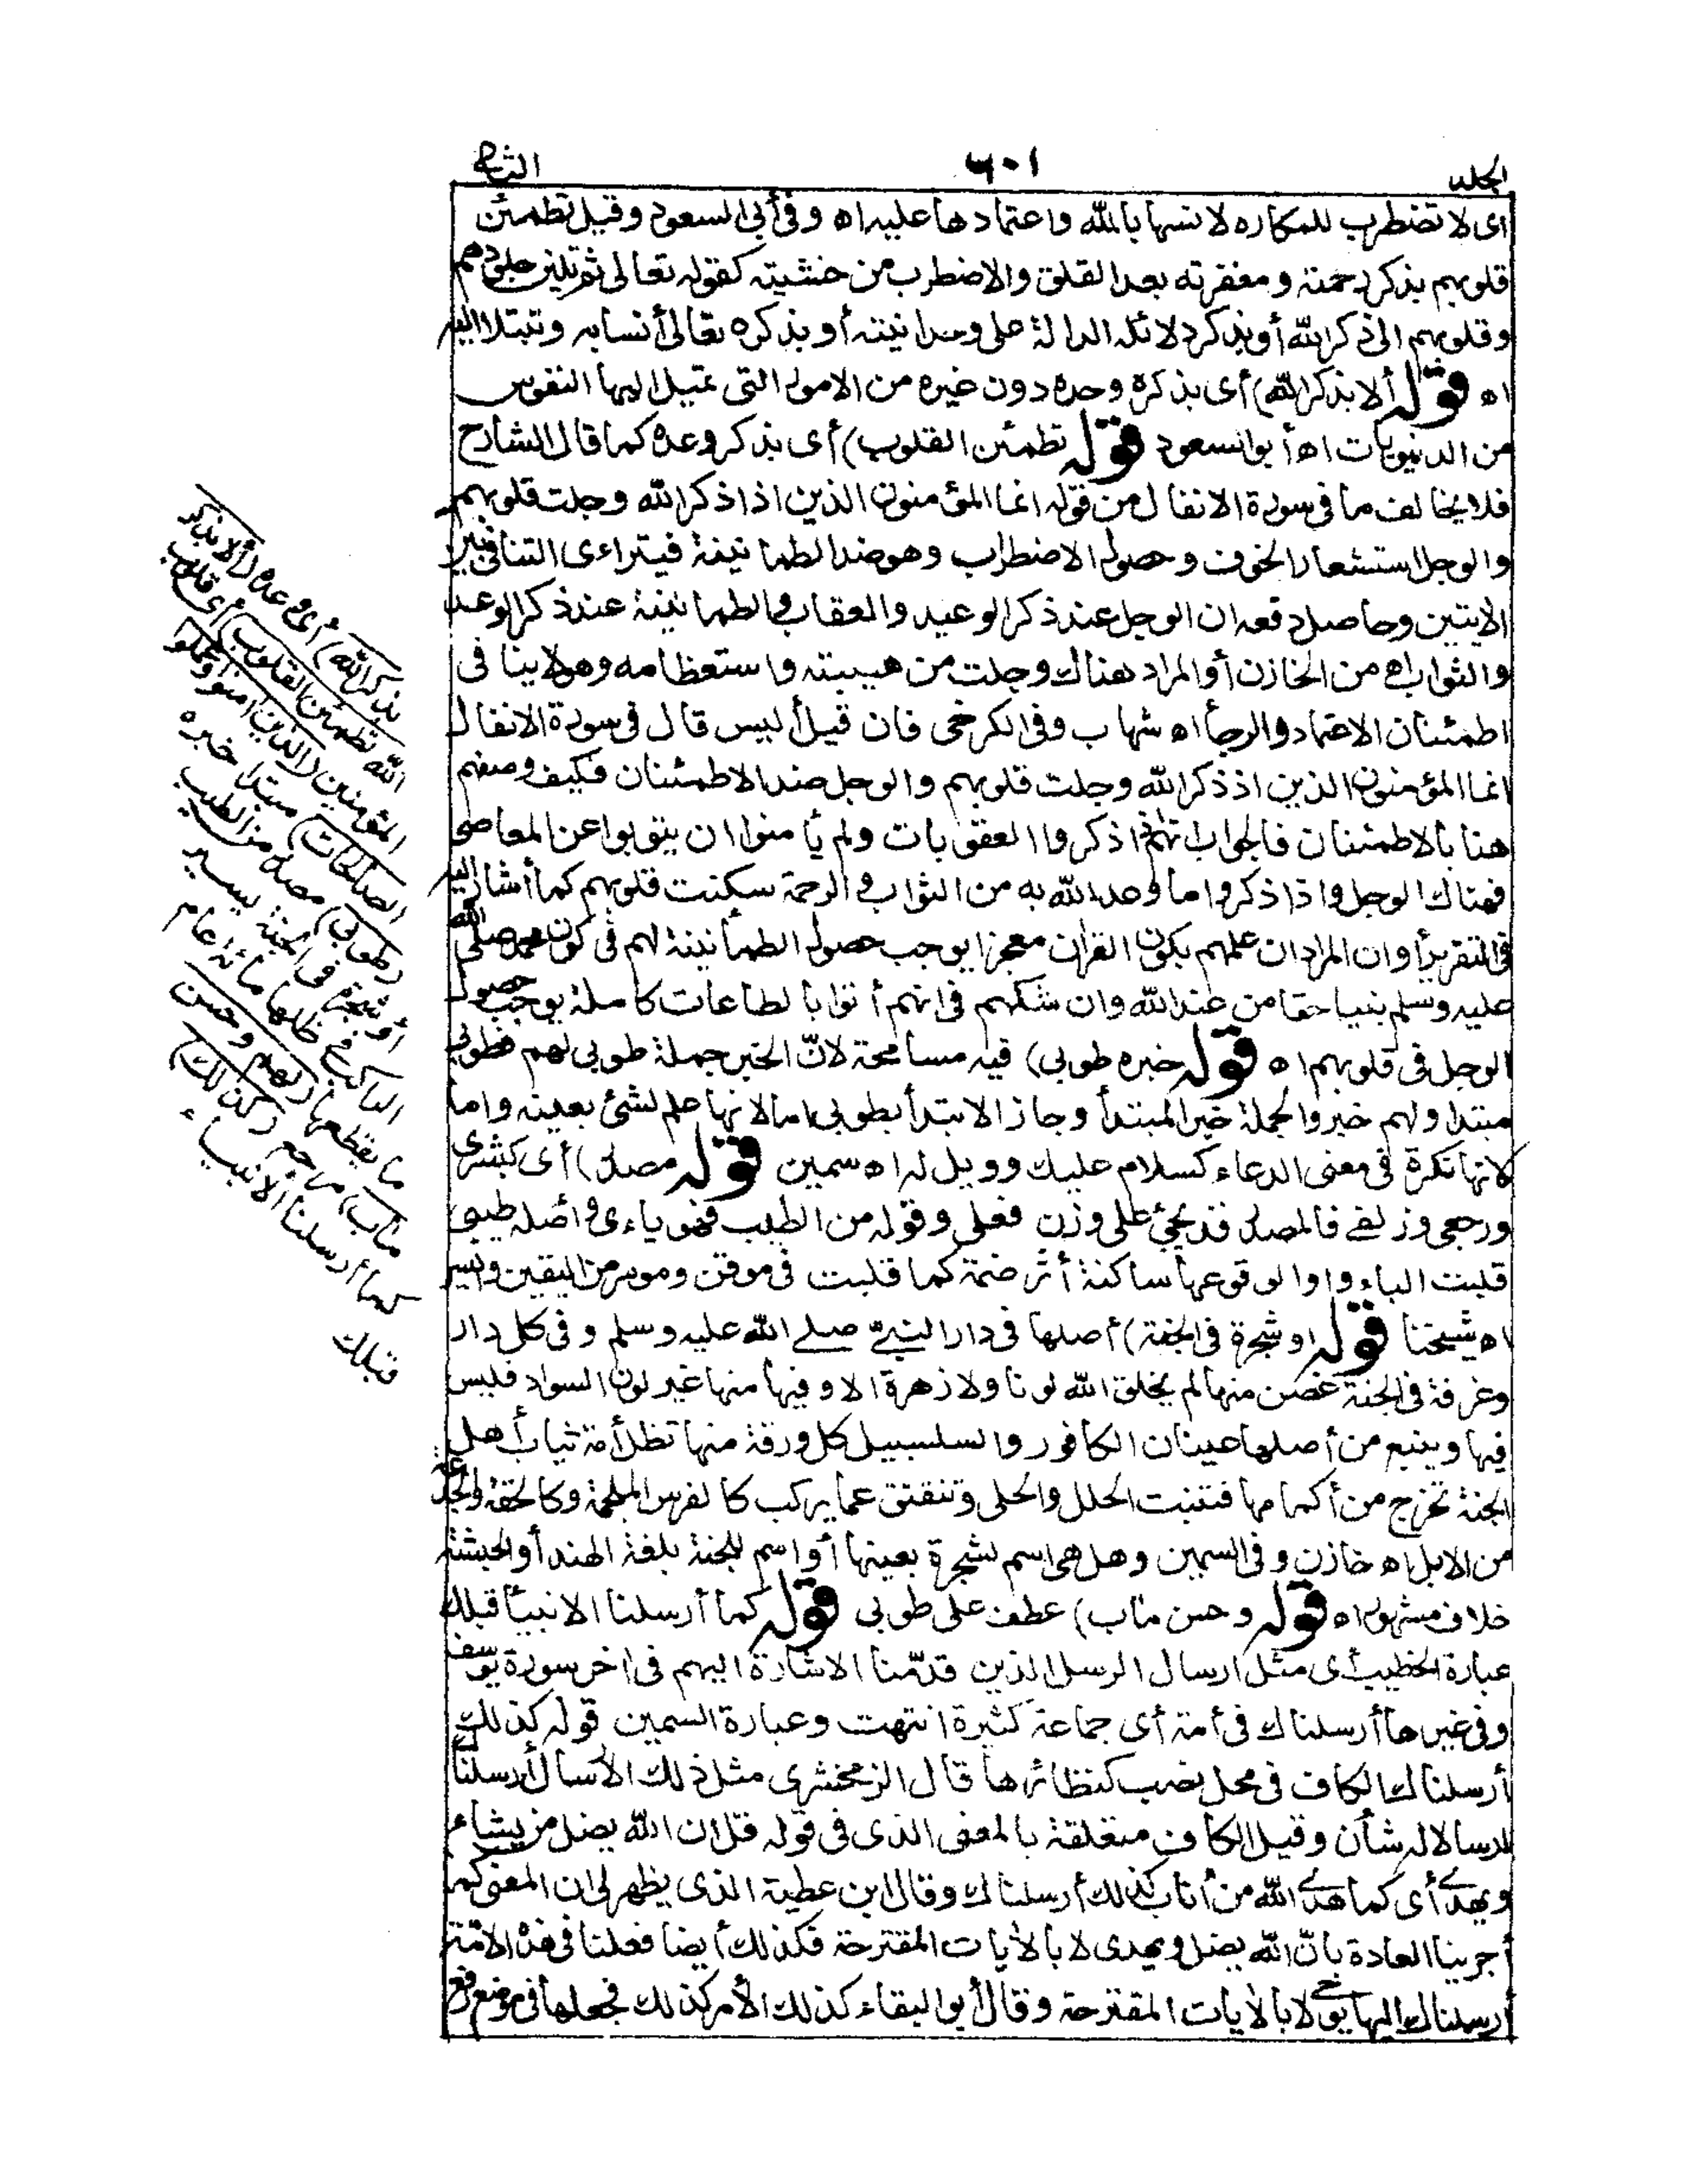 الجلد ٦٠١ الثانى
اى لا تضطرب للمكاره لانسها بالله واعتمادها عليه اه وفى أبى السعود وقيل تطمئن
قلوبهم بذكر رحمته ومغفرته بعد القلق والاضطرب من خشيته كقوله تعالى ثم تلين جلودهم
وقلوبهم الى ذكر الله أو بذكر دلائله الدالة على وحدانيته أو بذكره تعالى أنسا به وتبتلا اليه
اه قوله ألا بذكر الله) أى بذكره وحده دون غيره من الامور التى تميل اليها النفوس
من الدنيويات اه أبو السعود قوله تطمئن القلوب) أى بذكر وعده كما قال الشارح
فلا يخالف ما فى سورة الانفال من قوله انما المؤمنون الذين اذا ذكر الله وجلت قلوبهم
والوجل استشعار الخوف وحصول الاضطراب وهو ضد الطمانينة فيتراءى التنافى بين
الايتين وحاصل دفعه ان الوجل عند ذكر الوعيد والعقاب والطمانينة عند ذكر الوعد
والثواب اه من الخازن أو المراد هناك وجلت من هيبته واستعظامه وهو لا ينافى
اطمئنان الاعتماد والرجأ اه شهاب وفى الكرخى فان قيل أليس قال فى سورة الانفال
انما المؤمنون الذين اذ ذكر الله وجلت قلوبهم والوجل ضد الاطمئنان فكيف وصفهم
هنا بالاطمئنان فالجواب انهم اذ ذكروا العقوبات ولم يأمنوا ان يتوبوا عن المعاصى
فهناك الوجل واذا ذكروا ما وعد الله به من الثواب والرحمة سكنت قلوبهم كما أشار اليه
فى التقرير أو ان المراد ان علمهم بكون القران معجزا يوجب حصول الطمأنينة لهم فى كون محمد صلى الله
عليه وسلم بنيا حقا من عند الله وان شكهم فى انهم أتوا بالطاعات كاملة يوجب حصول
الوجل فى قلوبهم اه قوله خبره طوبى) فيه مسامحة لانّ الخبر جملة طوبى لهم فطوبى
مبتدا ولهم خبر والجملة خبر المبتدأ وجاز الابتدأ بطوبى اما لانها علم لشئ بعينه واما
لانها نكرة فى معنى الدعاء كسلام عليك وويل له اه سمين قوله مصدر) أى كبشرى
ورجعى وزلفى فالمصدر قد يجئ على وزن فعلى وقوله من الطيب فهو ياءى وأصله طيبى
قلبت الياء واوا لوقوعها ساكنة أثر ضمة كما قلبت فى موقن وموسر من اليقين واليسر
اه شيخنا قوله اوشجرة فى الجنة) أصلها فى دار النبى صلى الله عليه وسلم وفى كل دار
وغرفة فى الجنة غصن منها لم يخلق الله لونا ولا زهرة الا وفيها منها غير لون السواد فليس
فيها وينبع من أصلها عينان الكافور والسلسبيل كل ورقة منها تظل أمة ثياب أهل
الجنة تخرج من أكمامها فتنبت الحلل والحلى وتنفتق عما يركب كالفرس الملجمة وكالحقة والجذعة
من الابل اه خازن وفى السمين وهل هى اسم لشجرة بعينها أو اسم للجنة بلغة الهند أو الحبشة
خلاف مشهور اه قوله وحسن ماب) عطف على طوبى قوله كما أرسلنا الانبيأ قبلك
عبارة الخطيب أى مثل ارسال الرسل الذين قدّمنا الاشارة اليهم فى اخر سورة يوسف
وفى غيرها أرسلناك فى أمة أى جماعة كثيرة انتهت وعبارة السمين قوله كذلك
أرسلناك الكاف فى محل نصب كنظائرها قال الزمخشرى مثل ذلك الارسال أرسلناك
ارسالا له شأن وقيل الكاف متعلقة بالمعنى الذى فى قوله قل ان الله يضل من يشاء
ويهدى أى كما هدى الله من أناب كذلك أرسلناك وقال ابن عطية الذى يظهر لى ان المعنى كما
أجرينا العادة بانّ الله يضل ويهدى لا بالأيات المقترحة فكذلك أيضا فعلنا فى هذه الامّة
أرسلناك اليها بوحى لا بالأيات المقترحة وقال أبو البقاء كذلك الأمر كذلك فجعلها فى موضع رفع
أى وعده (ألا بذكر
الله تطمئن القلوب) أى قلوب
المؤمنين (الذين امنوا وعملوا
الصالحات) مبتدا خبره
(طوبى) مصدر من الطيب
أو شجرة فى الجنة يسير
الراكب فى ظلها مائة عام
ما يقطعها (لهم وحسن
ماب) مرجع (كذلك)
كما أرسلنا الانبياء
قبلك